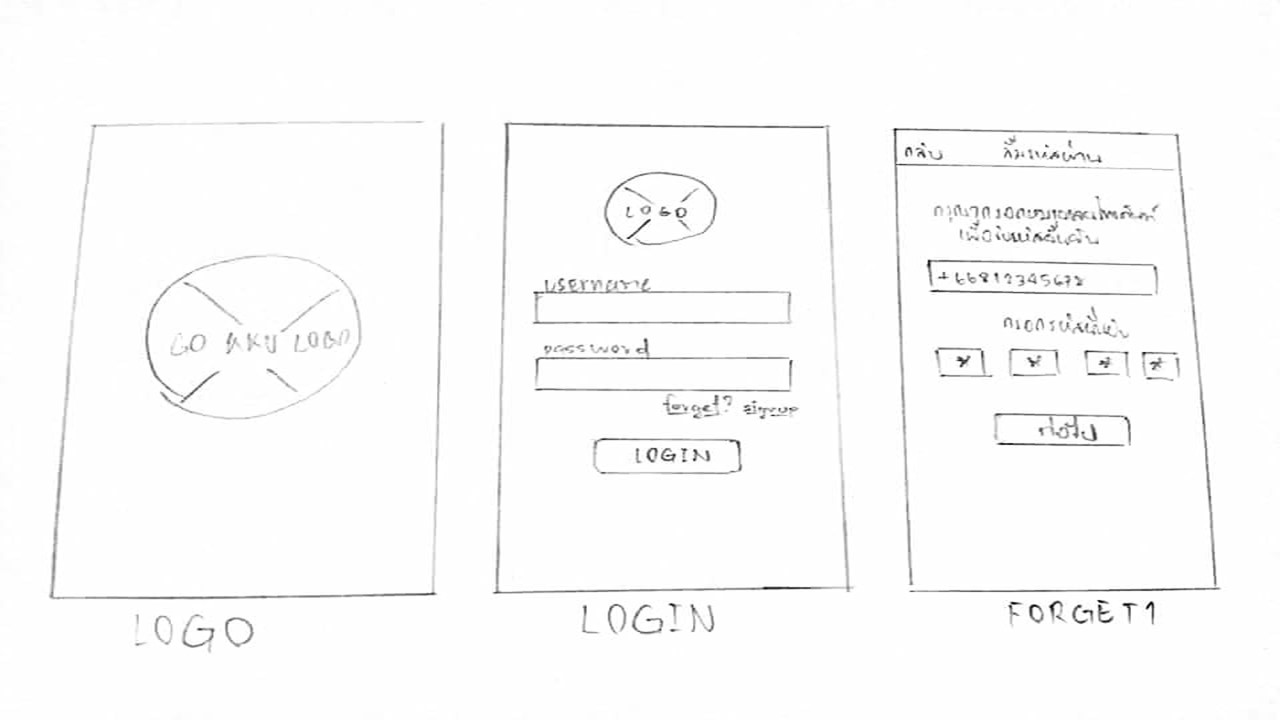 GO KKU LOGO
LOGO
LOGO
username
password
forget? signup
LOGIN
LOGIN
กลับ ลืมรหัสผ่าน
กรุณากรอกหมายเลขโทรศัพท์
เพื่อรับรหัสยืนยัน
+66812345678
กรอกรหัสที่ได้รับ
* * * *
ต่อไป
FORGET1